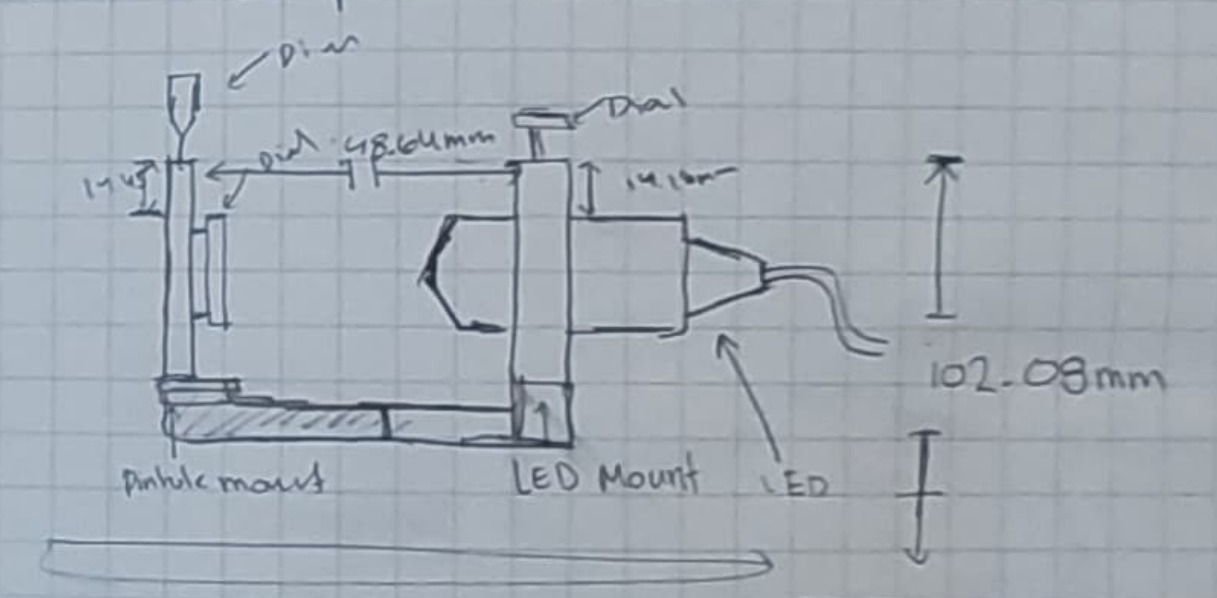 Dial
Dial
Dial
48.64mm
102.08mm
Pinhole mount
LED Mount
LED